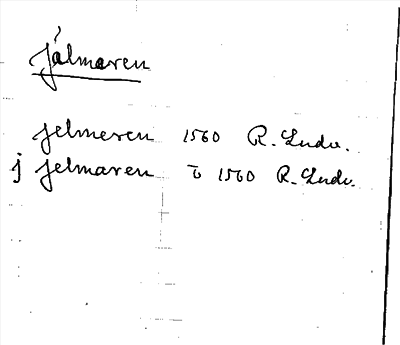 jälmaren
jelmeren 1560 R. Ludv.
j jelmaren ö 1560 R. Ludv.